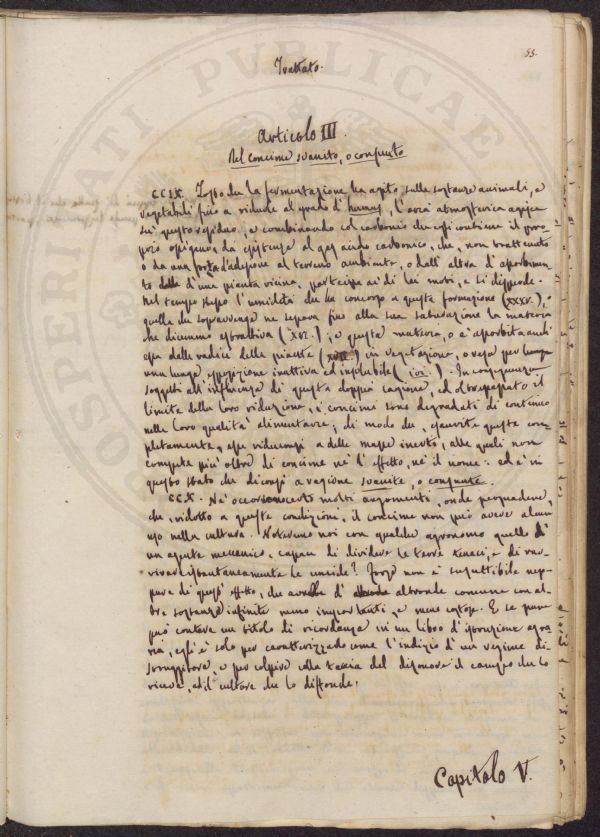 PROSPERITATI PUBLICAE
55.
Trattato.
Articolo III.
Del concime svanito, o consunto
CCIX. Dopo che la fermentazione ha agito sulle sostanze animali, e
vegetabili fino a ridurle al grado di humus, l'aria atmosferica agisce
su questo residuo, e combinando col carbonio che essi contiene il pro-
prio ossigeno, da esistenza al gas acido carbonico, che, non trattenuto
o da una forza d'adesione al terreno ambiente, o dall'altra d'assorbimen-
to di una pianta vicina, partecipa ai di lei moti, e si disperde.
Nel tempo stesso l'umidità che ha concorso a questa formazione (XXXV.), e
quella che sopravviene ne separa fino alla sua saturazione la materia
che dicemmo estrattiva (XVI.); e questa materia, o è assorbita anch'
essa dalle radici delle piante (XVII) in vegetazione, o resa per lunga
una lunga esposizione inattiva ed insolubile. In conseguenza
soggetti all'influenza di questa doppia cagione, ed oltrepassato il
limite della loro riduzione, i concimi sono degradati di continuo
nelle loro qualità alimentari; di modo che, esaurite queste com-
pletamente, essi riduconsi a delle masse inerti, alle quali non
compete più oltre di concime nè l'effetto, nè il nome: ed è in
questo stato che diconsi a ragione svanite, o consunte.
CCX. Nè occorrono certo molti argomenti, onde persuadere,
che, ridotto a queste condizioni, il concime non può avere alcun
uso nella cultura. Noteremo noi con qualche agronomo quello d'
un agente meccanico, capace di dividere le terre tenaci, e di rav-
vivare istantaneamente le umide? Forse non è suscettibile nep-
pure di questi effetti, che avrebbe d'altronde comune con al-
tre sostanze infinite meno importanti, e meno costose. E se pure
può contare un titolo di ricordanza in un libro d'istruzione agra-
ria, egli è solo per caratterizzarlo come l'indizio d'un regime di-
struggitore, e per colpire colla taccia del disonore il campo che lo
riceve, ed il cultore che lo diffonde.
Capitolo V.